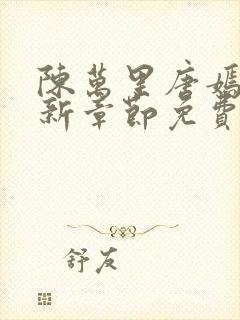 陳萬里唐嫣
新章節免費
舒友